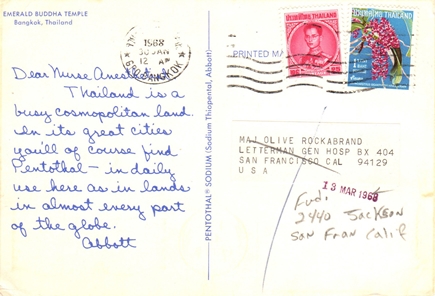 EMERALD BUDDHA TEMPLE
Bangkok, Thailand
Dear Nurse Anesthetist
Thailand is a
busy cosmopolitan land.
In its great cities
you'll of course find
Pentothal — in daily
use here as in lands
in almost every part
of the globe.
Abbott
PENTOTHAL® SODIUM (Sodium Thiopental, Abbott)
1968
JAN
12 AM
BANGKOK
PRINTED MA
ประเทศไทย THAILAND
THAILAND
MAJ OLIVE ROCKABRAND
LETTERMAN GEN HOSP BX 404
SAN FRANCISCO CAL 94129
U S A
13 MAR 1968
Fwd.
2440 Jackson
San Fran Calif